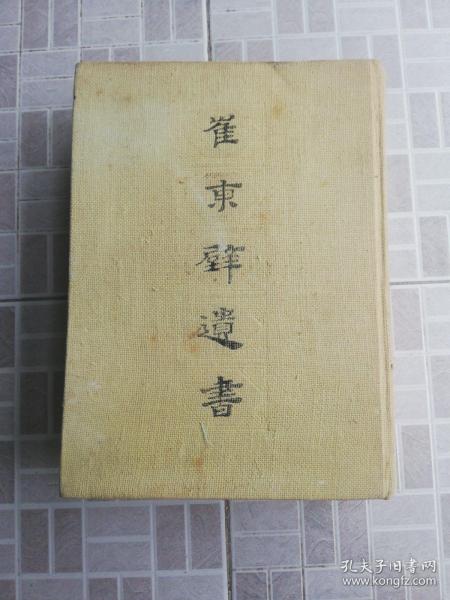 崔東壁遺書
孔夫子旧书网
www.kongfz.com